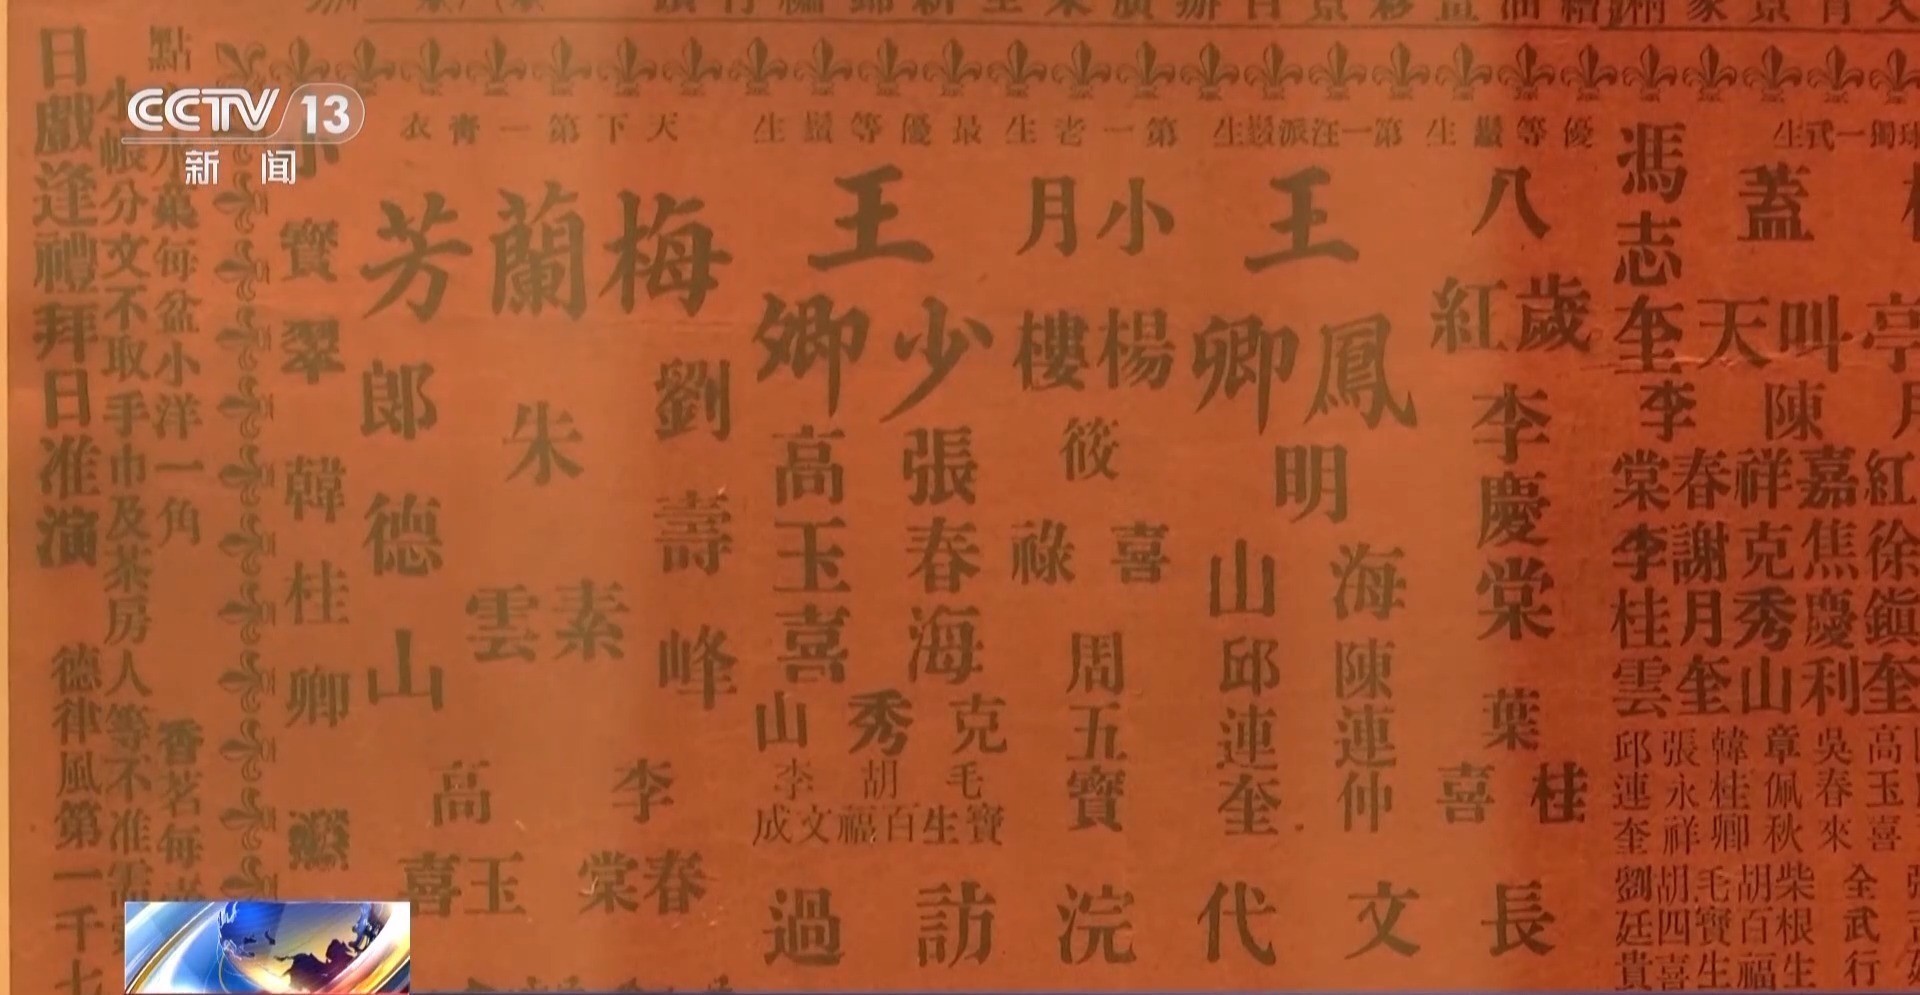 CCTV 13
新闻
優等鬚生
八歲紅
李慶棠
葉桂喜
長
第一汪派鬚生
王鳳卿
明海山
陳連仲
邱連奎
文
代
第一老生
小楊月樓
筱喜祿
周五寶
浣
最優等鬚生
王少卿
張春海
高玉喜
克秀山
毛寶生
胡百福
李文成
訪
過
天下第一青衣
梅蘭芳
劉壽峰
朱素雲
郎德山
李春棠
高玉喜
小寶翠
韓桂卿
馮志奎
蓋叫天
李春棠
陳嘉祥
謝月奎
李桂雲
焦慶利
克秀山
高玉喜
吳春來
章佩秋
韓桂卿
張永祥
邱連奎
全武行
柴根生
胡百福
毛寶生
胡四喜
劉廷貴
每盆小洋一角
香茗每
小帳分文不取手巾及茶房人等不准需
日戲逢禮拜日准演
德律風第一千七